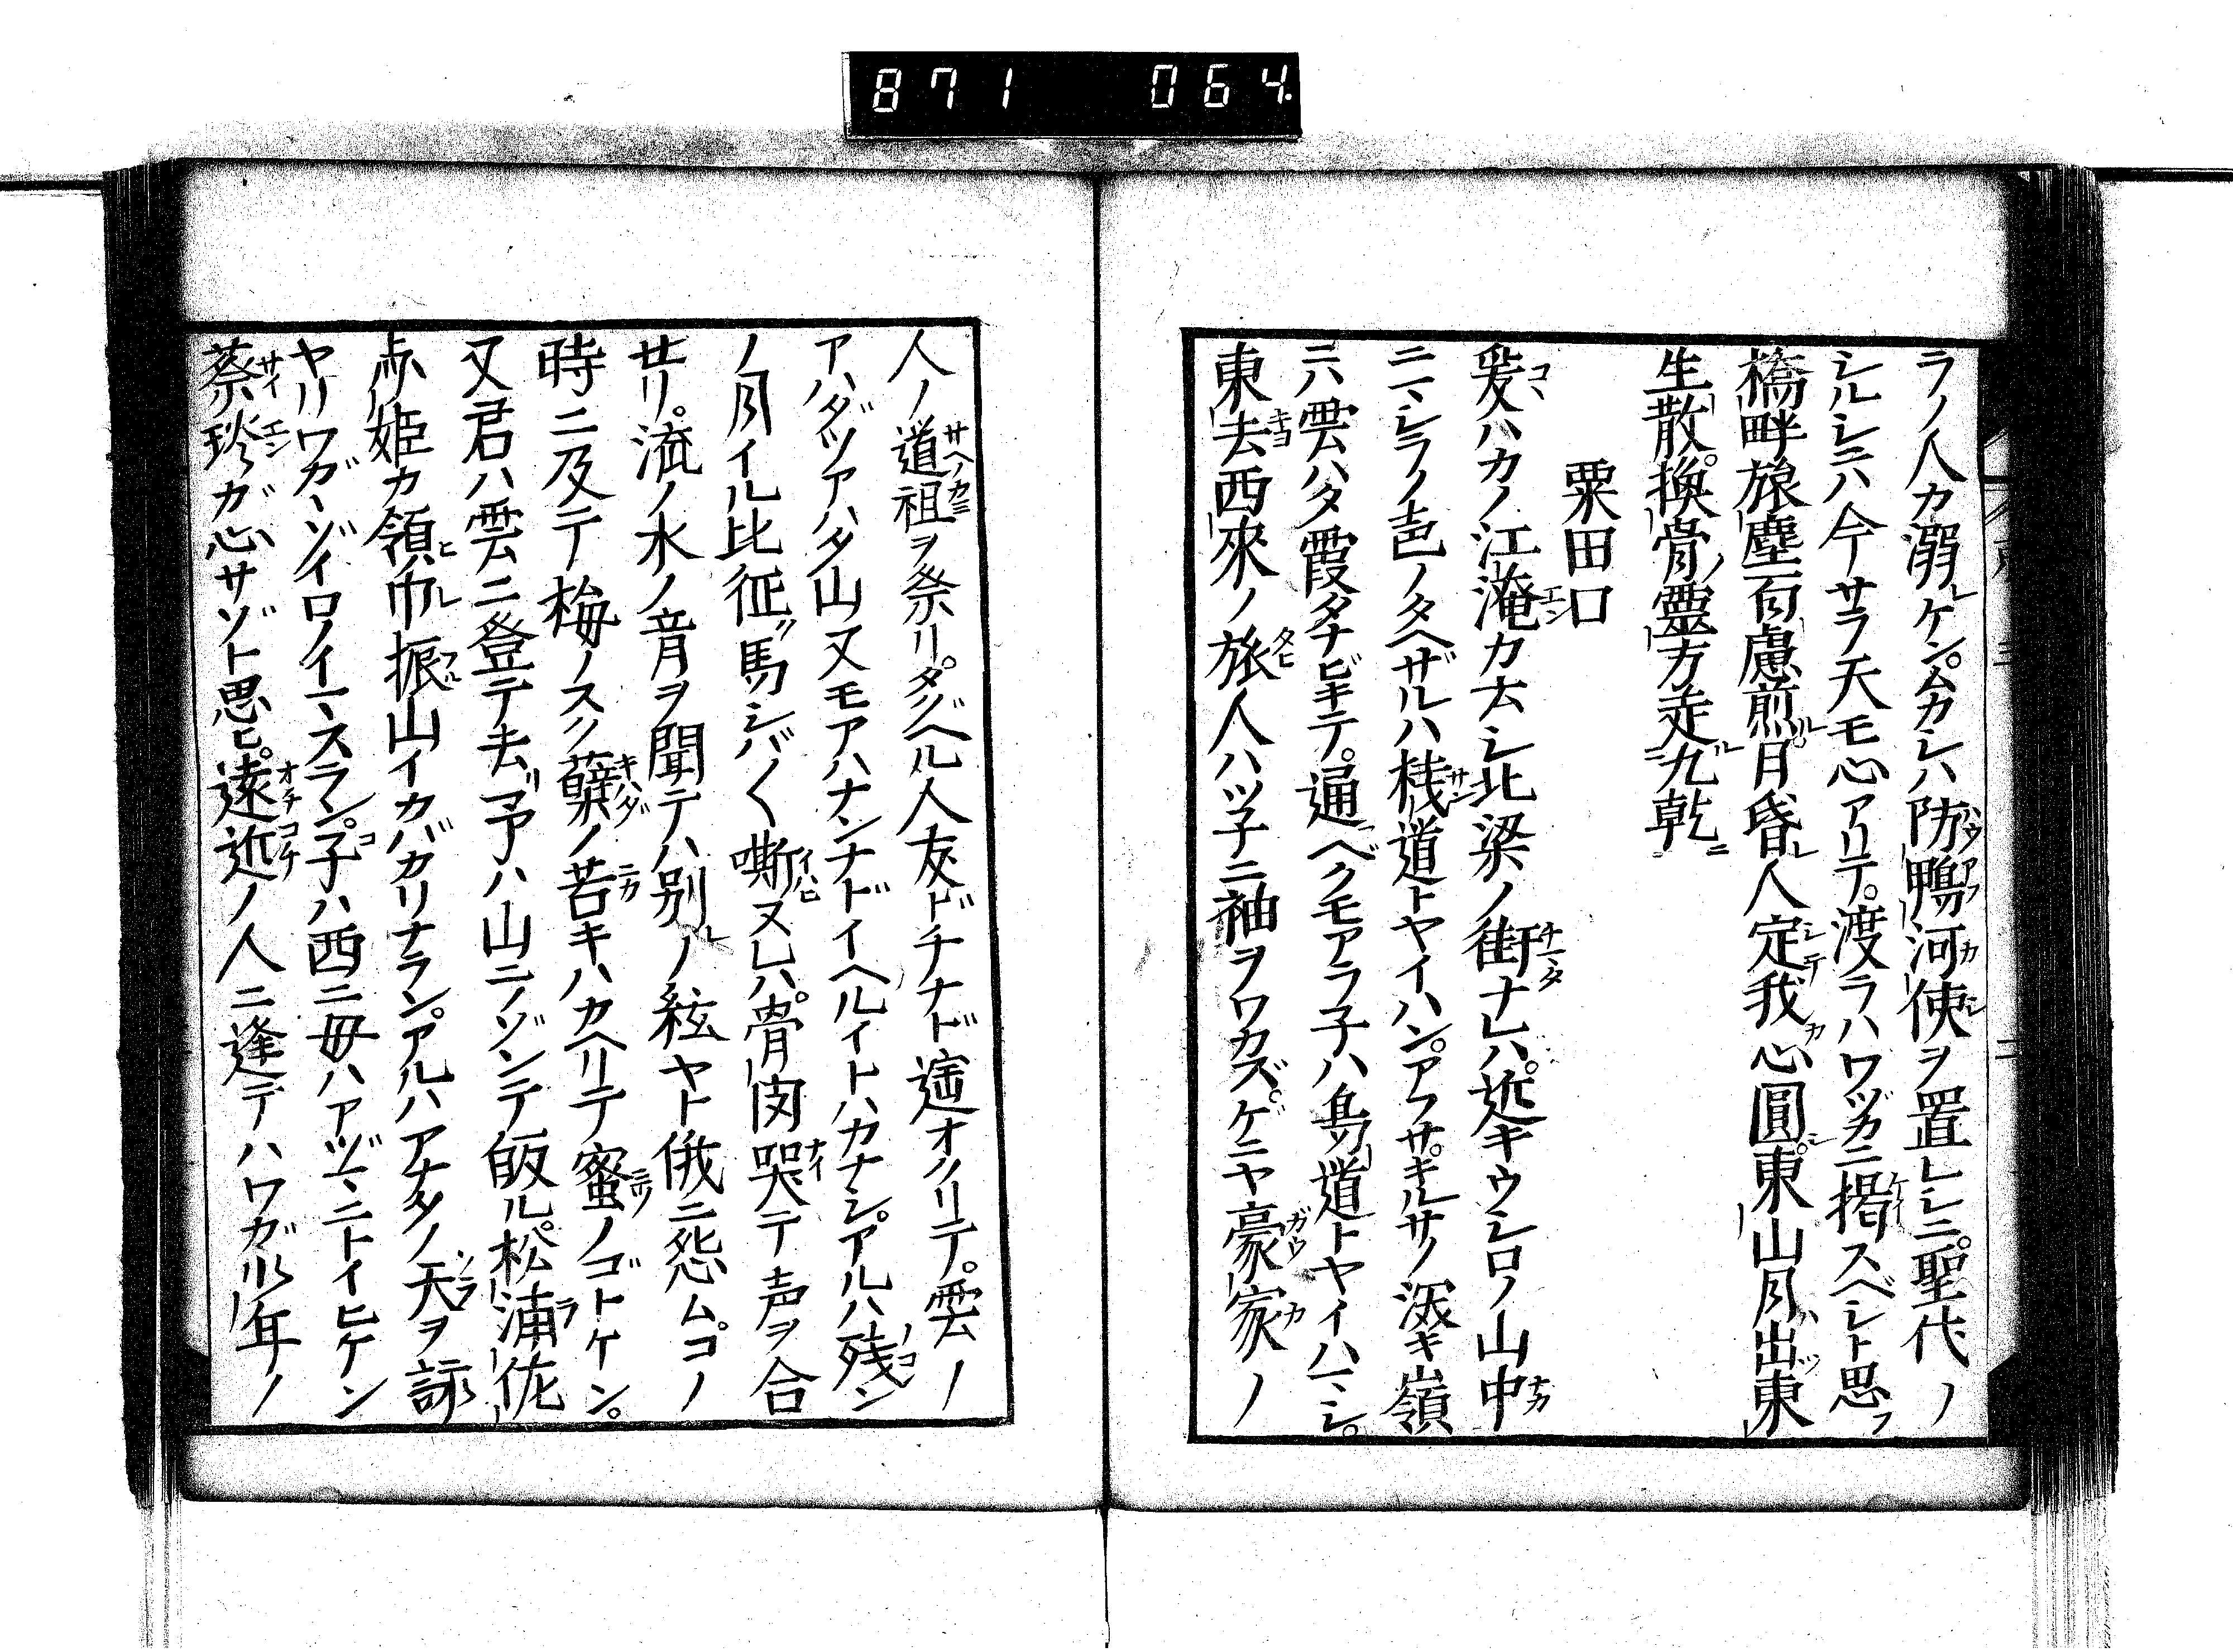 871 064
ラノ人カ溺レケン。ムカシハ防鴨河使ヲ置レシニ。聖代ノ
シルシニハ今サラ天モ心アリテ。渡ラハワヅカニ掲スベシト思フ
橋畔旅塵百慮煎ル。月昏レ人定テ我心圓シ。東山月ハ出ツ東
生散。換骨ノ霊方走ル九乾ニ
粟田口
爰ハカノ江淹カ去シ北梁ノ街ナレハ。近キウシロノ山中
ニマシラノ声ノタヘザルハ桟道トヤイハン。アフサキルサノ深キ嶺
ニハ雲ハタ霞タナビキテ。通ベクモアラ子ハ鳥道トヤイハマシ。
東去西來ノ旅人ハツ子ニ袖ヲワカズ。ゲニヤ豪家ノ
人ノ道祖ヲ祭リ。タグヘル人友ドチナド遥オクリテ。雲ノ
アハダツアハタ山又モアハナンナドイヘルイトハカナシ。アルハ残ン
ノ月イル比征馬シバ〱嘶ヌレハ。骨肉哭テ声ヲ合
せリ。流ノ水ノ音ヲ聞テハ別レノ絃ヤト俄ニ怨ム。コノ
時ニ及テ梅ノスク蘗ノ苦キハカヘリテ蜜ノゴトケン。
又君ハ雲ニ登テ去リ予ハ山ニノゾンテ皈ル。松浦佐
㐂姫カ領巾振山イカバカリナラン。アルハアナタノ天ヲ詠
ヤリワガマゾイロノイマスラン。子ハ西ニ母ハアヅマニトイヒケン
蔡琰ガ心サゾト思ヒ。遠近ノ人ニ逢テハワガ少年ノ